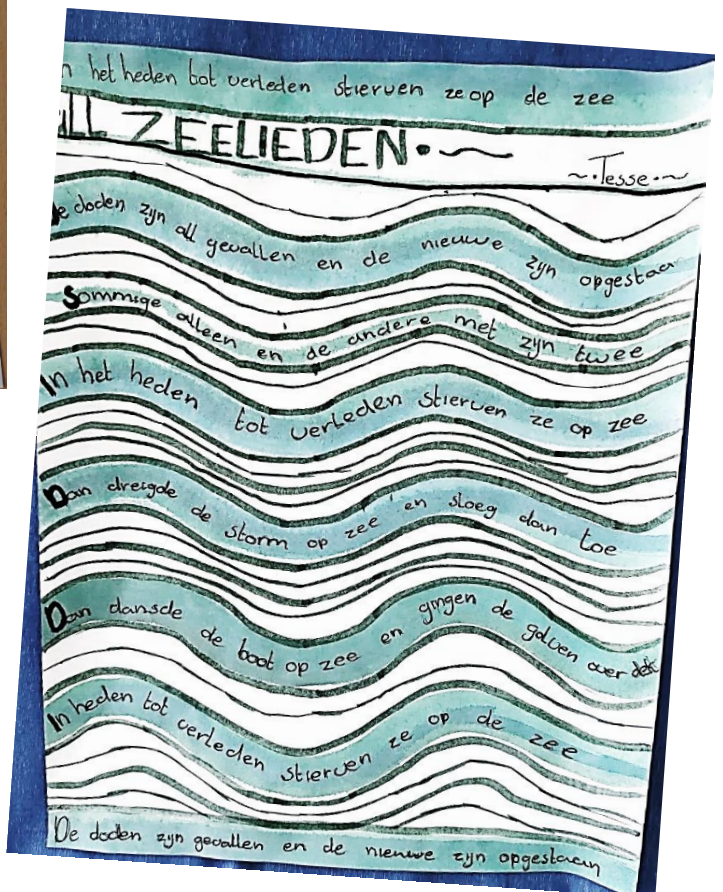 n het heden tot verleden stierven ze op de zee
all ZEELIEDEN.~
~.Tesse.~
De doden zijn all gevallen en de nieuwe zijn opgestaan
Sommige alleen en de andere met zijn twee
In het heden tot verleden stierven ze op zee
Dan dreigde de storm op zee en sloeg dan toe
Dan dansde de boot op zee en gingen de golven over dek
In heden tot verleden stierven ze op de zee
De doden zijn gevallen en de nieuwe zijn opgestaan